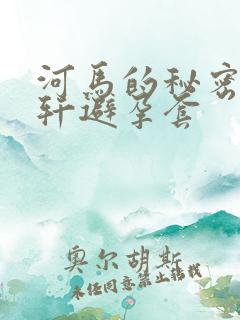 河马的秘密
轩避孕套
奥尔胡斯
未经同意禁止转载